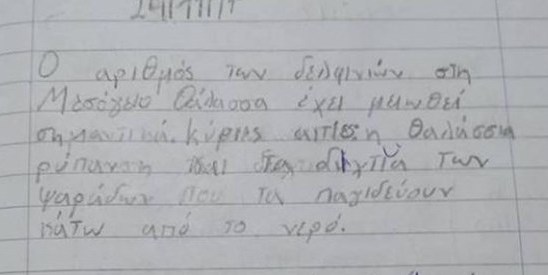 24/11/1
Ο αριθμός των δελφινιών στη
Μεσόγειο θάλασσα έχει μειωθεί
σημαντικά. Κύριες αιτίες: η θαλάσσια
ρύπανση και τα δίχτυα των
ψαράδων που τα παγιδεύουν
κάτω από το νερό.